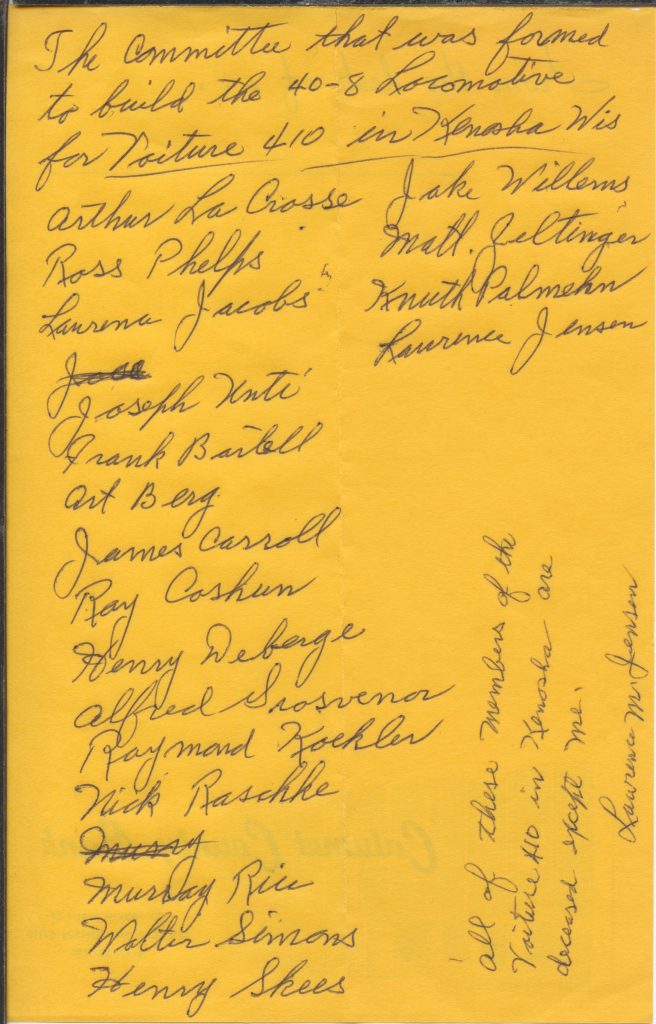 The Committee that was formed
to build the 40-8 Locomotive
for Voiture 410 in Kenosha Wis
Arthur La Crosse
Ross Phelps
Laurence Jacobs
Joseph Unti
Frank Bartell
Art Berg
James Carroll
Ray Coshun
Henry Deberge
Alfred Grosvenor
Raymond Koehler
Nick Raschke
Murry
Murray Rice
Walter Simons
Henry Skees
Jake Willems
Matt. Zeltinger
Knuth Palmehn
Laurence Jensen
all of these members of the
Voiture 410 in Kenosha are
deceased except me.
Laurence M. Jensen